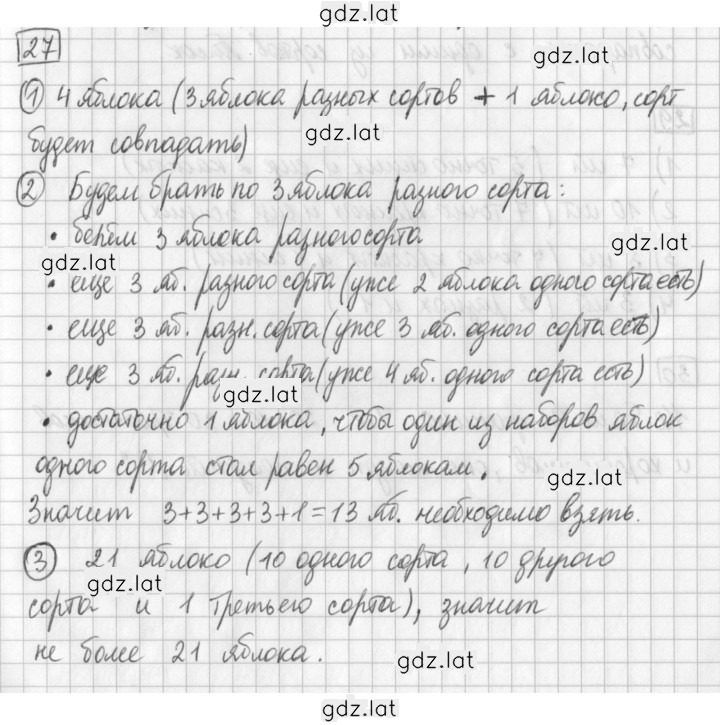 gdz.lat
27
gdz.lat
1 4 яблока (3 яблока разных сортов + 1 яблоко, сорт
gdz.lat
будет совпадать)
2 Будем брать по 3 яблока разного сорта:
• берём 3 яблока разного сорта
gdz.lat
gdz.lat
• еще 3 яб. разного сорта (уже 2 яблока одного сорта есть)
• еще 3 яб. разн. сорта (уже 3 яб. одного сорта есть)
• еще 3 яб. разн. сорта (уже 4 яб. одного сорта есть)
gdz.lat
• достаточно 1 яблока, чтобы один из наборов яблок
одного сорта стал равен 5 яблокам.
gdz.lat
Значит 3+3+3+3+1=13 яб. необходимо взять.
3 21 яблоко (10 одного сорта, 10 другого
gdz.lat
сорта и 1 третьего сорта), значит
не более 21 яблока.
gdz.lat
gdz.lat